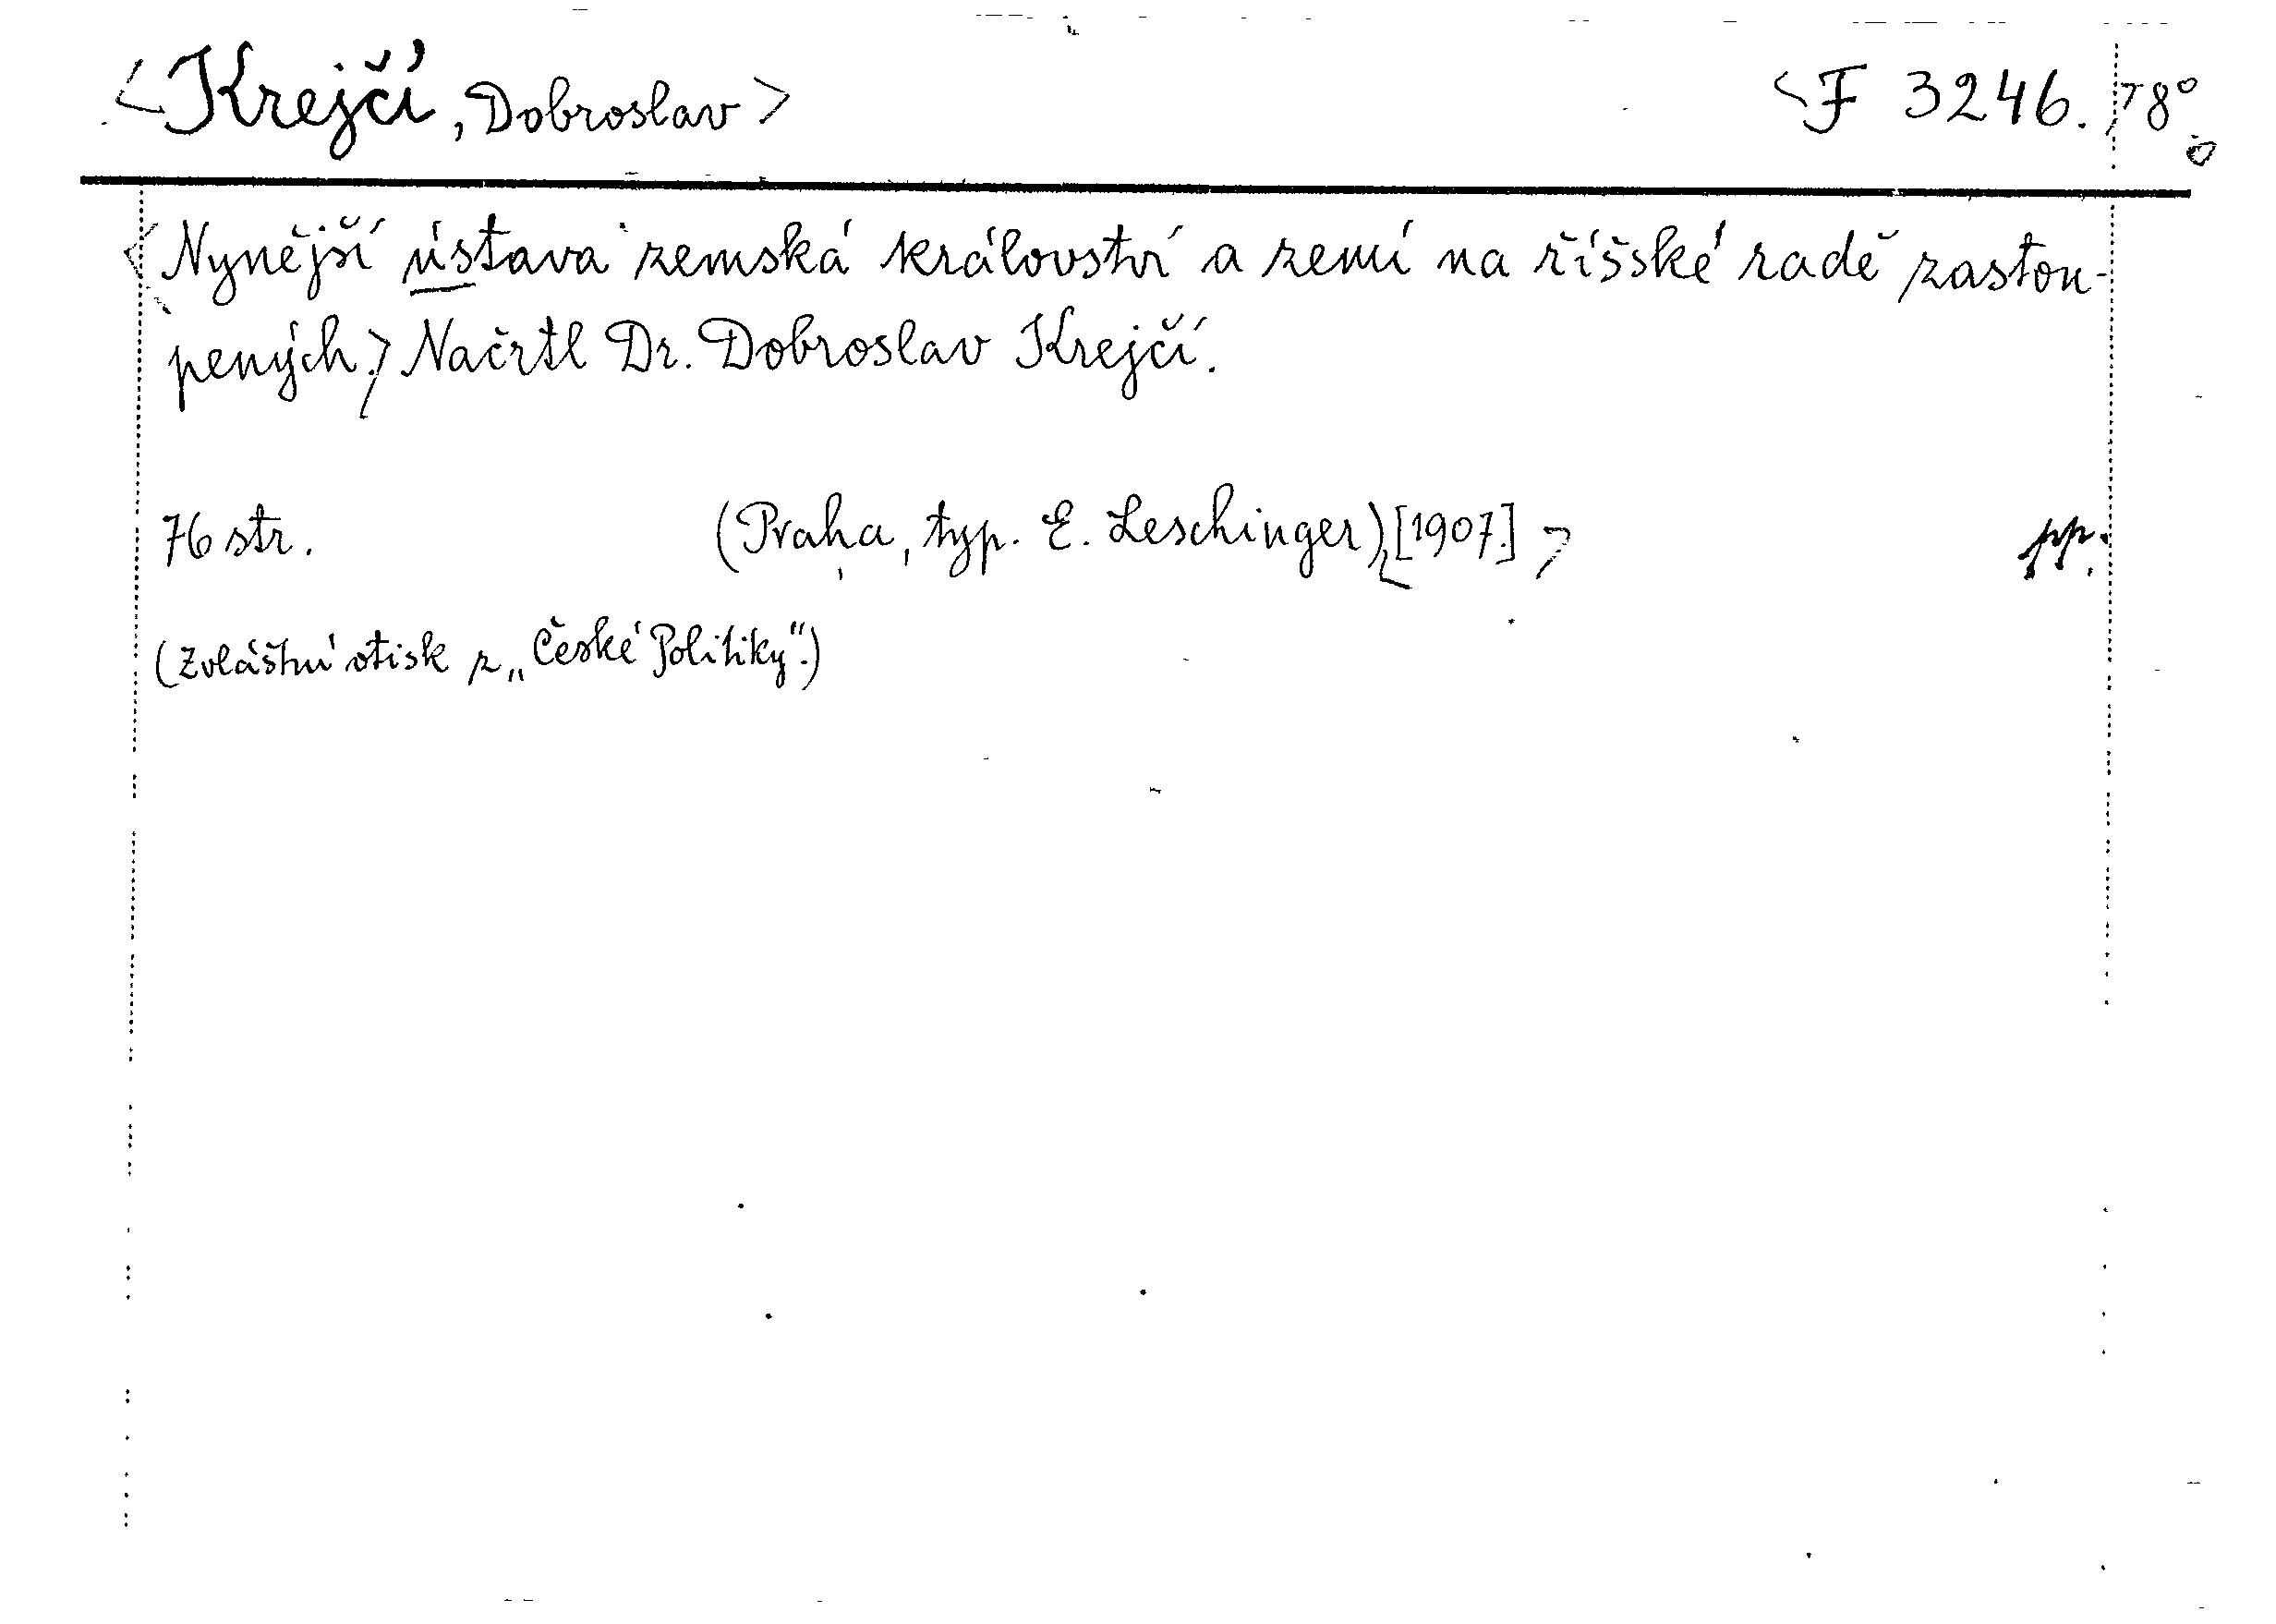 <Krejčí, Dobroslav> <F 3246.> 8°
<Nynější ústava zemská království a zemí na říšské radě zastou-
pených.> Načrtl Dr. Dobroslav Krejčí.
76 str. (Praha, typ. E. Leschinger),<[1907.]> pp.
(Zvláštní otisk z „České Politiky".)